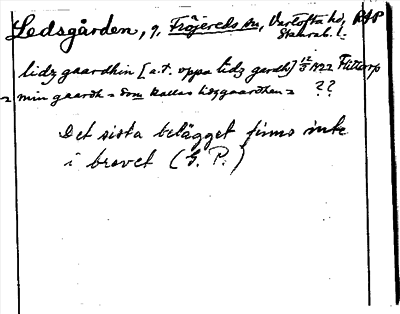 Ledsgården, g. Fröjereds sn, Vartofta hd, RAP
Skarab. l.
lidz gaardhin [a.t. oppa lidz gardh] 12/5 1422 Fittorp
= min gaardh = som kallas lidzgaardhen = ??
Det sista belägget finns inte
i brevet (G. P.)